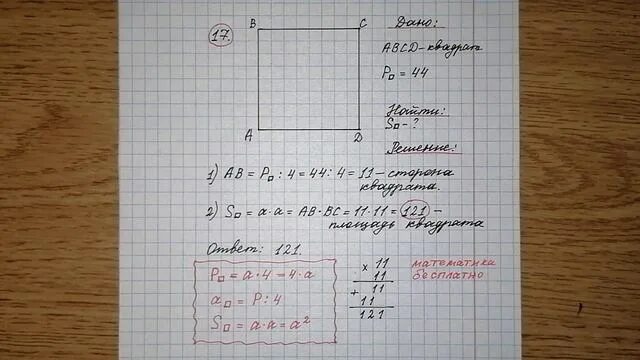 17.
B C
A D
Дано:
ABCD - квадрат
P□ = 44
Найти:
S□ - ?
Решение:
1) AB = P□ : 4 = 44 : 4 = 11 - сторона
квадрата.
2) S□ = a·a = AB·BC = 11·11 = 121 -
площадь квадрата
Ответ: 121.
P□ = a·4 = 4·a
a□ = P : 4
S□ = a·a = a²
× 11
11
+ 11
11
121
математика
бесплатно